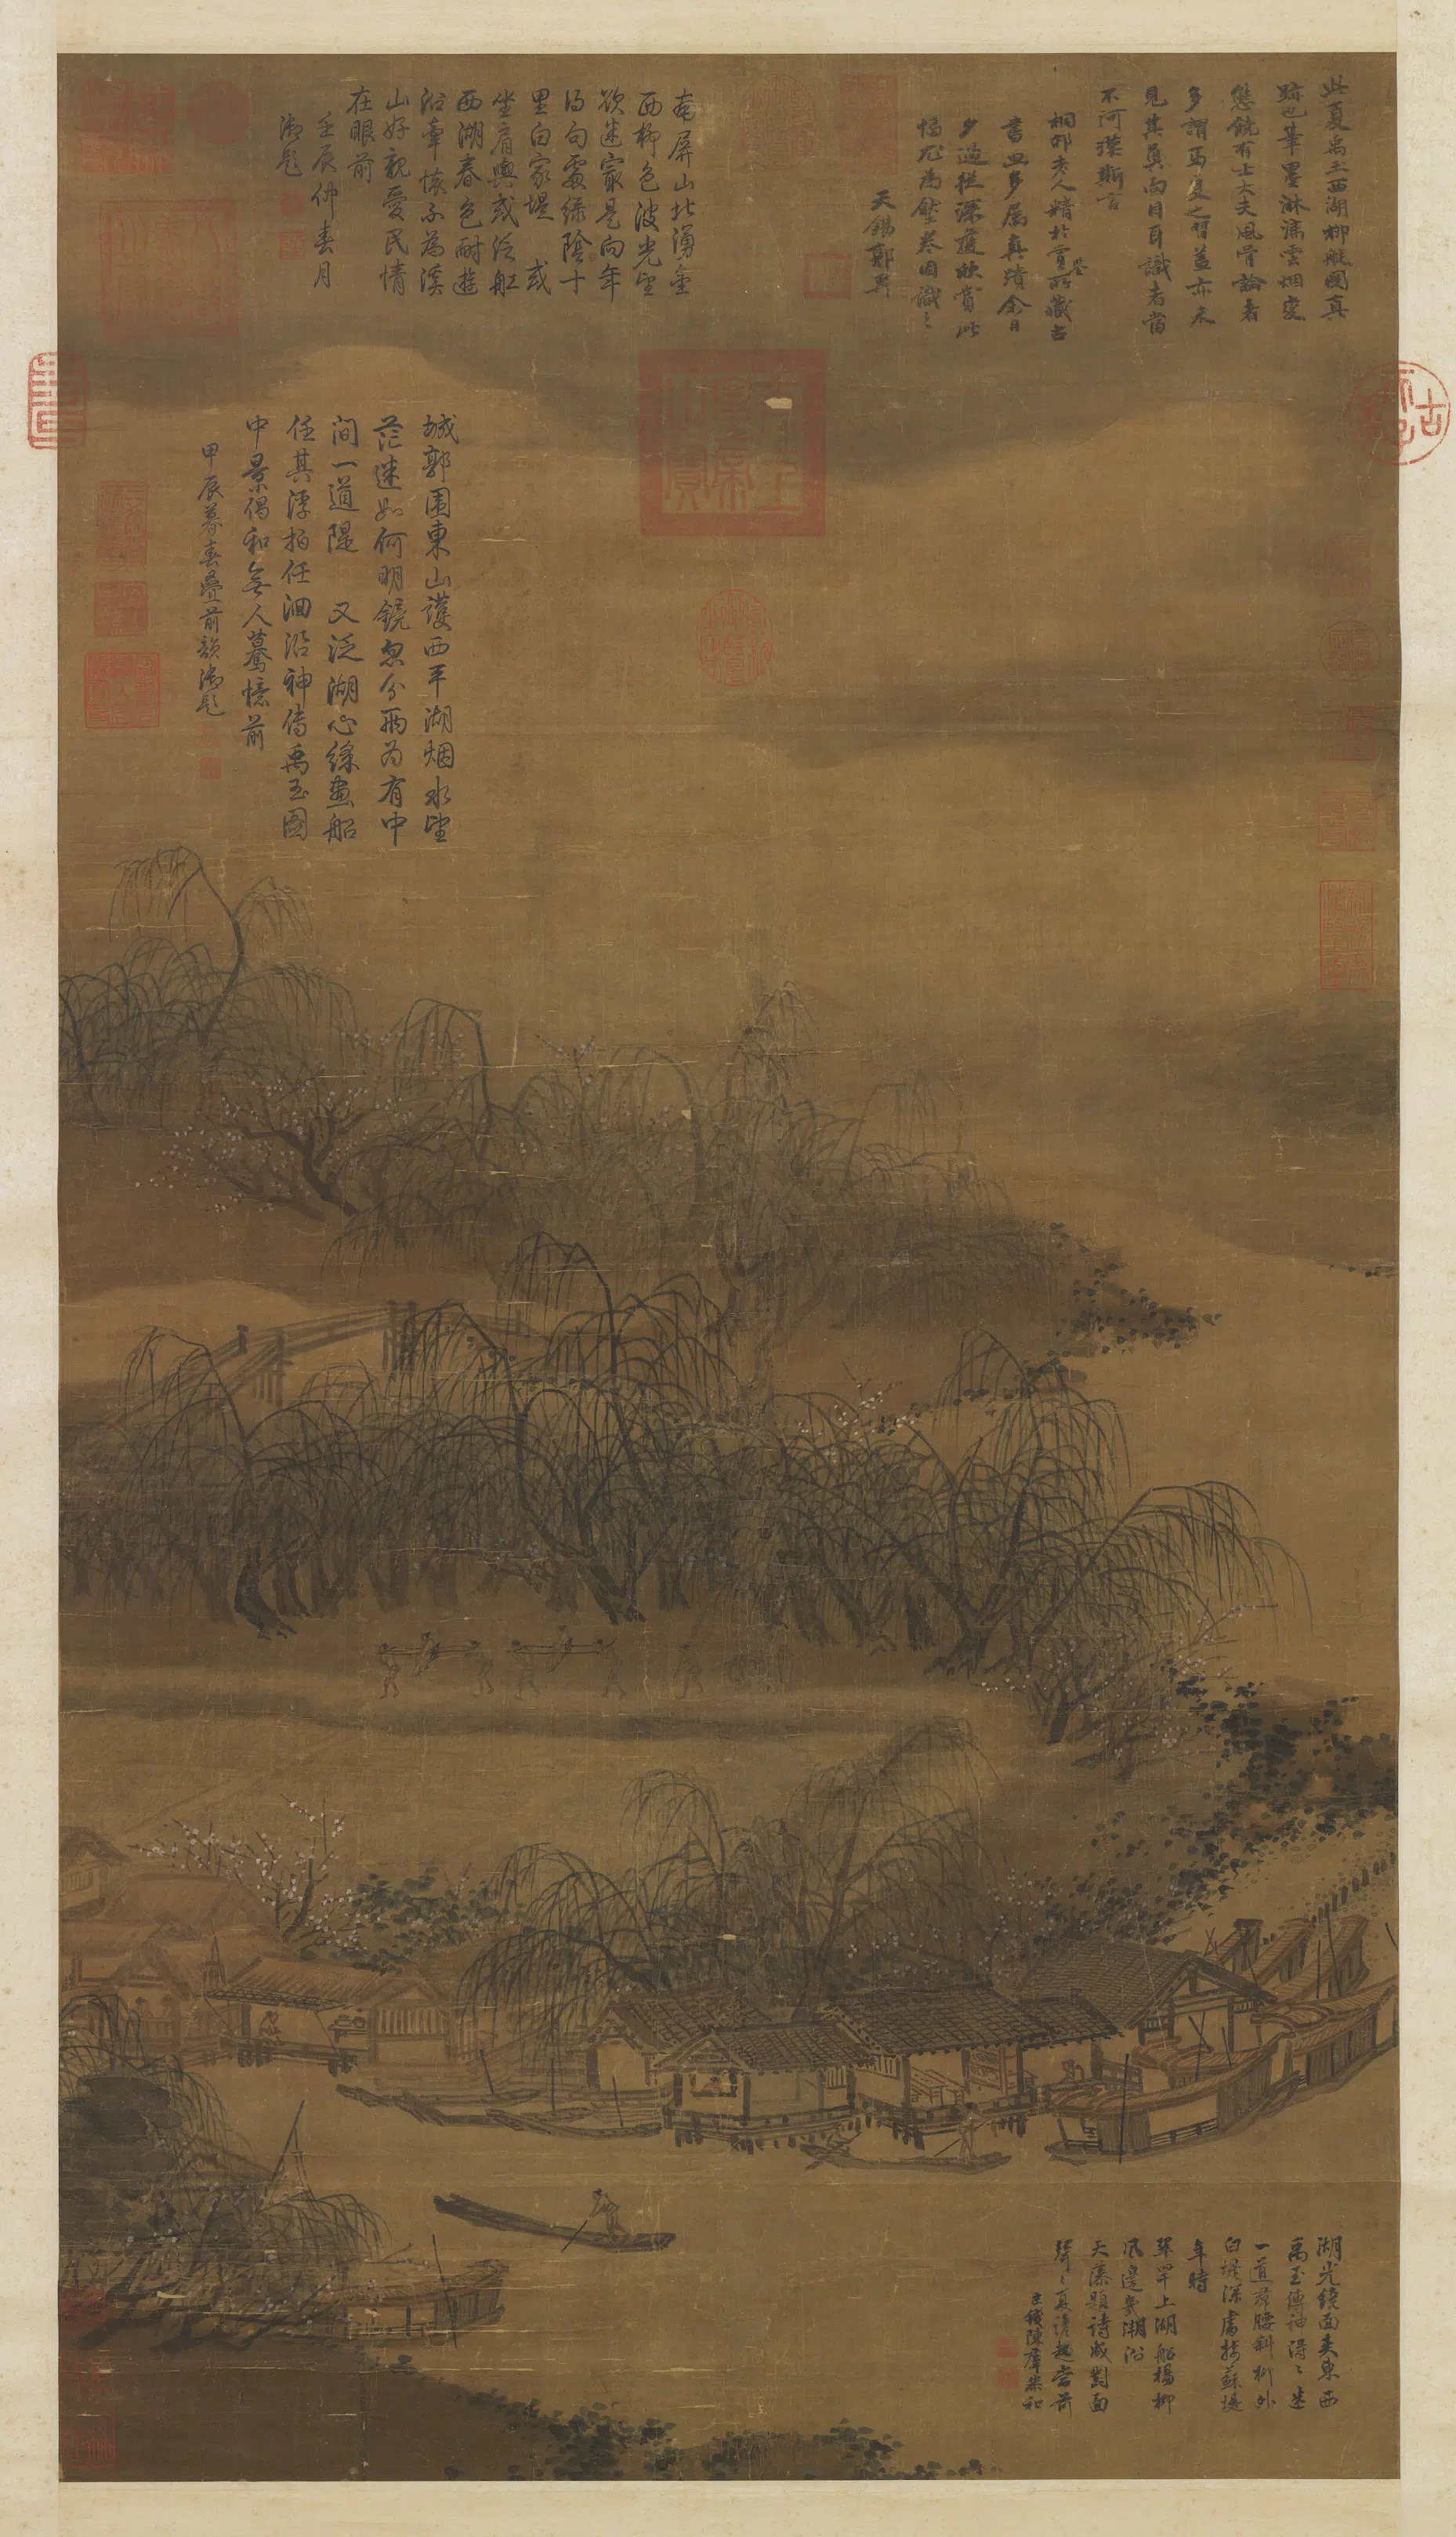 此夏禹玉西湖柳艇圖真
跡也筆墨淋漓雲烟變
態饒有士大夫風骨論者
多謂馬夏之習蓋亦未
見其真面目耳識者當
不河漢斯言
桐邨老人精於賞鑒所藏古
書畫多屬真蹟余日
夕過從深獲快賞此
幅尤為壓卷因識之
天錫郭畀
南屏山北湧金
西柳色波光望
欲迷最是向年
得句處綠陰十
里白家堤 或
坐肩輿或泛舡
西湖春色耐遊
沿韋懷不為溪
山好親愛民情
在眼前
壬辰仲春月
御題
城郭圍東山護西平湖烟水望
茫迷如何明鏡忽分兩為有中
間一道隄 又泛湖心綵畫船
任其浮拍任洄沿神傳禹玉圖
中景偶和無人驀憶前
甲辰暮春疊前韻御題
湖光繞面夾東西
禹玉傳神得得迷
一道裙腰斜柳外
白堤深處接蘇堤
年時
翠罕上湖船楊柳
風邊步溯沿
天藻題詩成對面
臣錢陳羣恭和